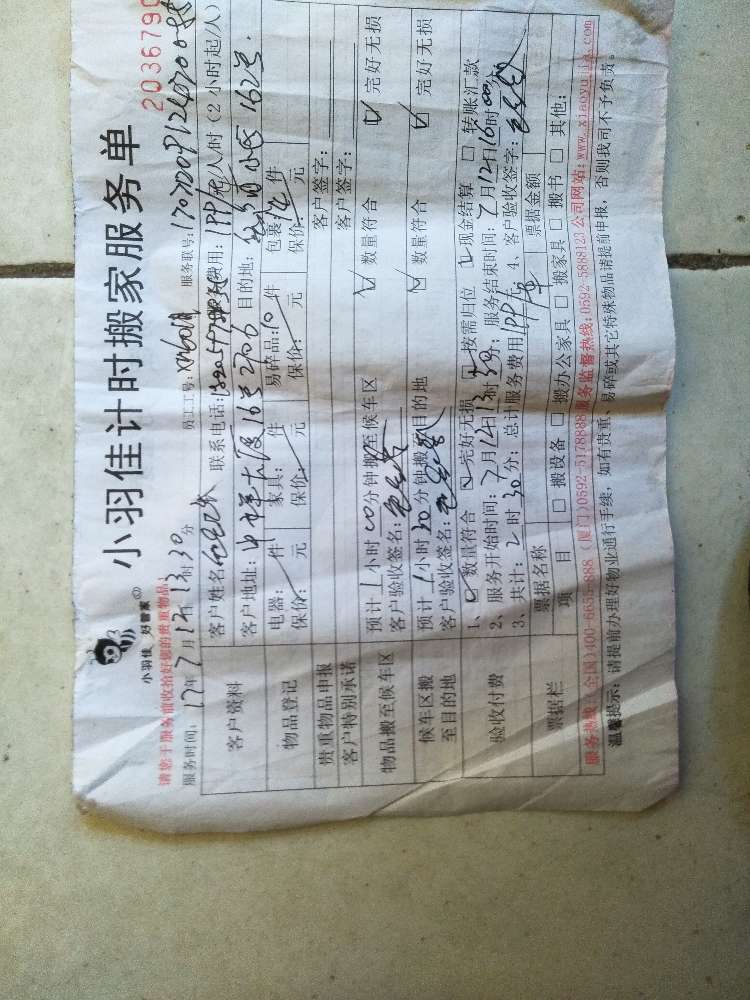 小羽佳 好管家
小羽佳计时搬家服务单
2036790
请您于服务前收拾好您的贵重物品!
服务时间: 17年7月12日13时30分 员工工号: 服务联号:
客户资料
客户姓名 联系电话: 费用: /人/时 (2小时起/人)
客户地址: 16号 目的地: 162号
物品登记
电器: 件 家具: 件 易碎品: 10件 包裹: 件
保价: 元 保价: 元 保价: 元 保价: 元
贵重物品申报 客户签字:
客户特别承诺 客户签字:
物品搬至候车区
预计1小时00分钟搬至候车区 ☑ 数量符合 ☑ 完好无损
客户验收签名:
候车区搬至目的地
预计1小时30分钟搬至目的地 ☑ 数量符合 ☑ 完好无损
客户验收签名:
验收付费
1、☑ 数量符合 ☑ 完好无损 ☑ 按需归位 ☑ 现金结算 □ 转账汇款
2、服务开始时间: 7月12日13时30分; 服务结束时间: 7月12日16时00分
3、共计: 2时30分; 总计服务费用 4、客户验收签字:
票据栏
票据名称 票据金额
项目 □ 搬设备 □ 搬办公家具 □ 搬家具 □ 搬书 □ 其他:
服务热线: 全国)400-6655-888 (厦门)0592-5178888 服务监督热线:0592-5888123 公司网站: www.xiaoyujia.com
温馨提示: 请提前办理好物业通行手续, 如有贵重、易碎或其它特殊物品请提前申报, 否则我司不予负责。